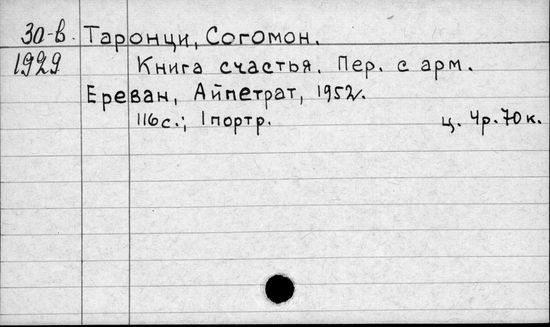 30-в. Таронци, Согомон.
1929 Книга счастья. Пер. с арм.
Ереван, Айпетрат, 1952.
116 с.; 1 портр. ц. 4р. 70 к.